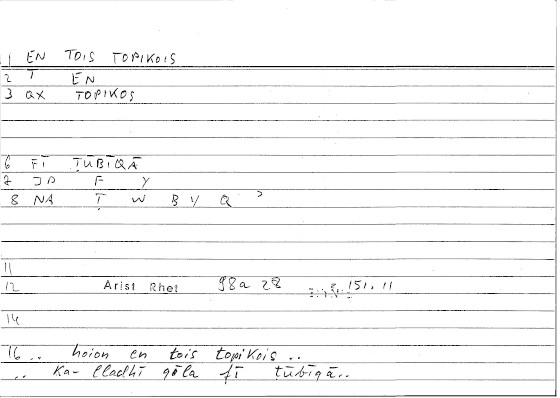 1 EN TOIS TOPIKOIS
2 T EN
3 QX TOPIKOS
6 FĪ ṬŪBĪQĀ
7 JD F Y
8 NA Ṭ W B Y Q ʾ
11
12 Arist Rhet 98a 28 151.11
14
16 .. hoion en tois topikois ..
.. Ka- lladhī qāla fī ṭūbīqā..